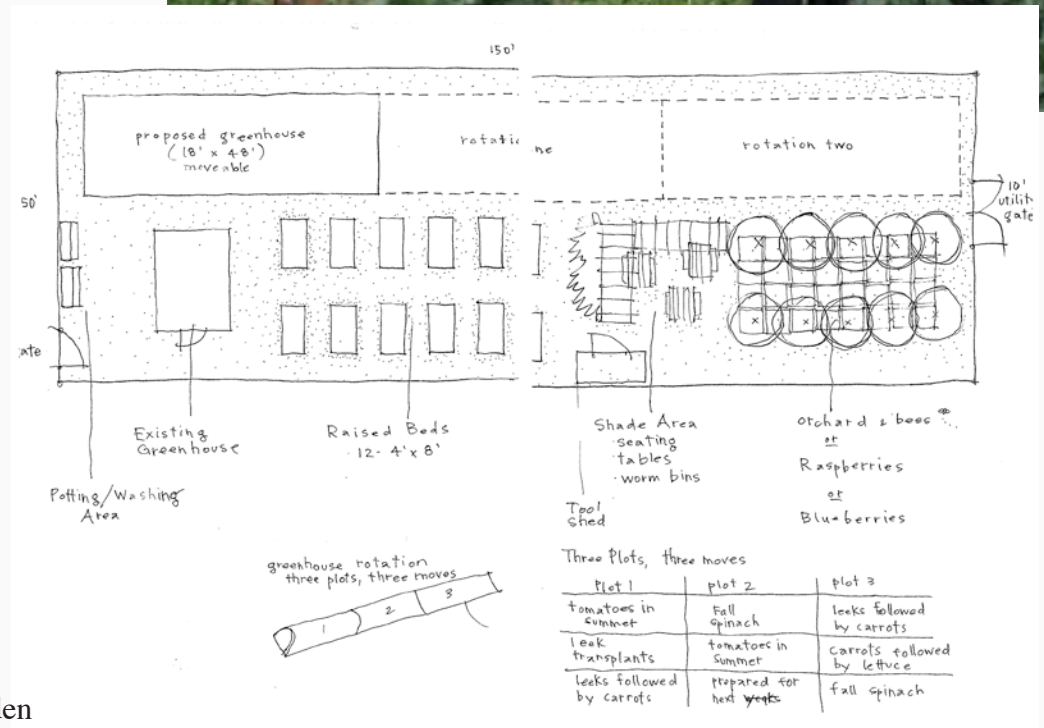 150'
proposed greenhouse
(18' x 48')
moveable
rotatio
ne
rotation two
50'
10'
utilit
gate
ate
Existing
Greenhouse
Raised Beds
· 12- 4' x 8'
Shade Area
· seating
· tables
· worm bins
Orchard & bees
or
Raspberries
or
Blueberries
Potting/Washing
Area
Tool
shed
greenhouse rotation
three plots, three moves
1 2 3
Three Plots, three moves
Plot 1 plot 2 plot 3
tomatoes in summer Fall spinach leeks followed by carrots
leek transplants tomatoes in summer carrots followed by lettuce
leeks followed by carrots prepared for next fall spinach
len